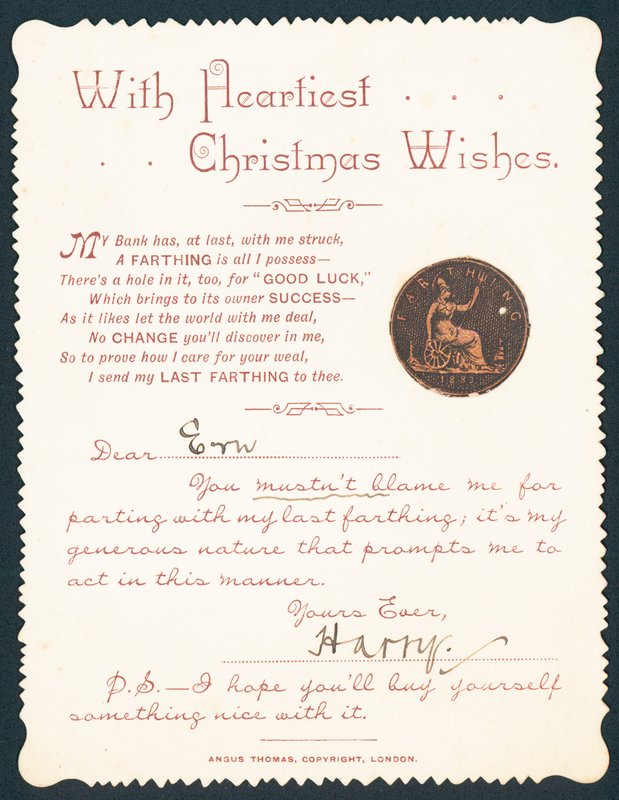 With Heartiest . . .
. . Christmas Wishes.
My Bank has, at last, with me struck,
A FARTHING is all I possess—
There's a hole in it, too, for "GOOD LUCK,"
Which brings to its owner SUCCESS—
As it likes let the world with me deal,
No CHANGE you'll discover in me,
So to prove how I care for your weal,
I send my LAST FARTHING to thee.
FARTHING
1883
Dear Ern
You mustn't blame me for
parting with my last farthing; it's my
generous nature that prompts me to
act in this manner.
Yours Ever,
Harry.
P.S.—I hope you'll buy yourself
something nice with it.
ANGUS THOMAS, COPYRIGHT, LONDON.